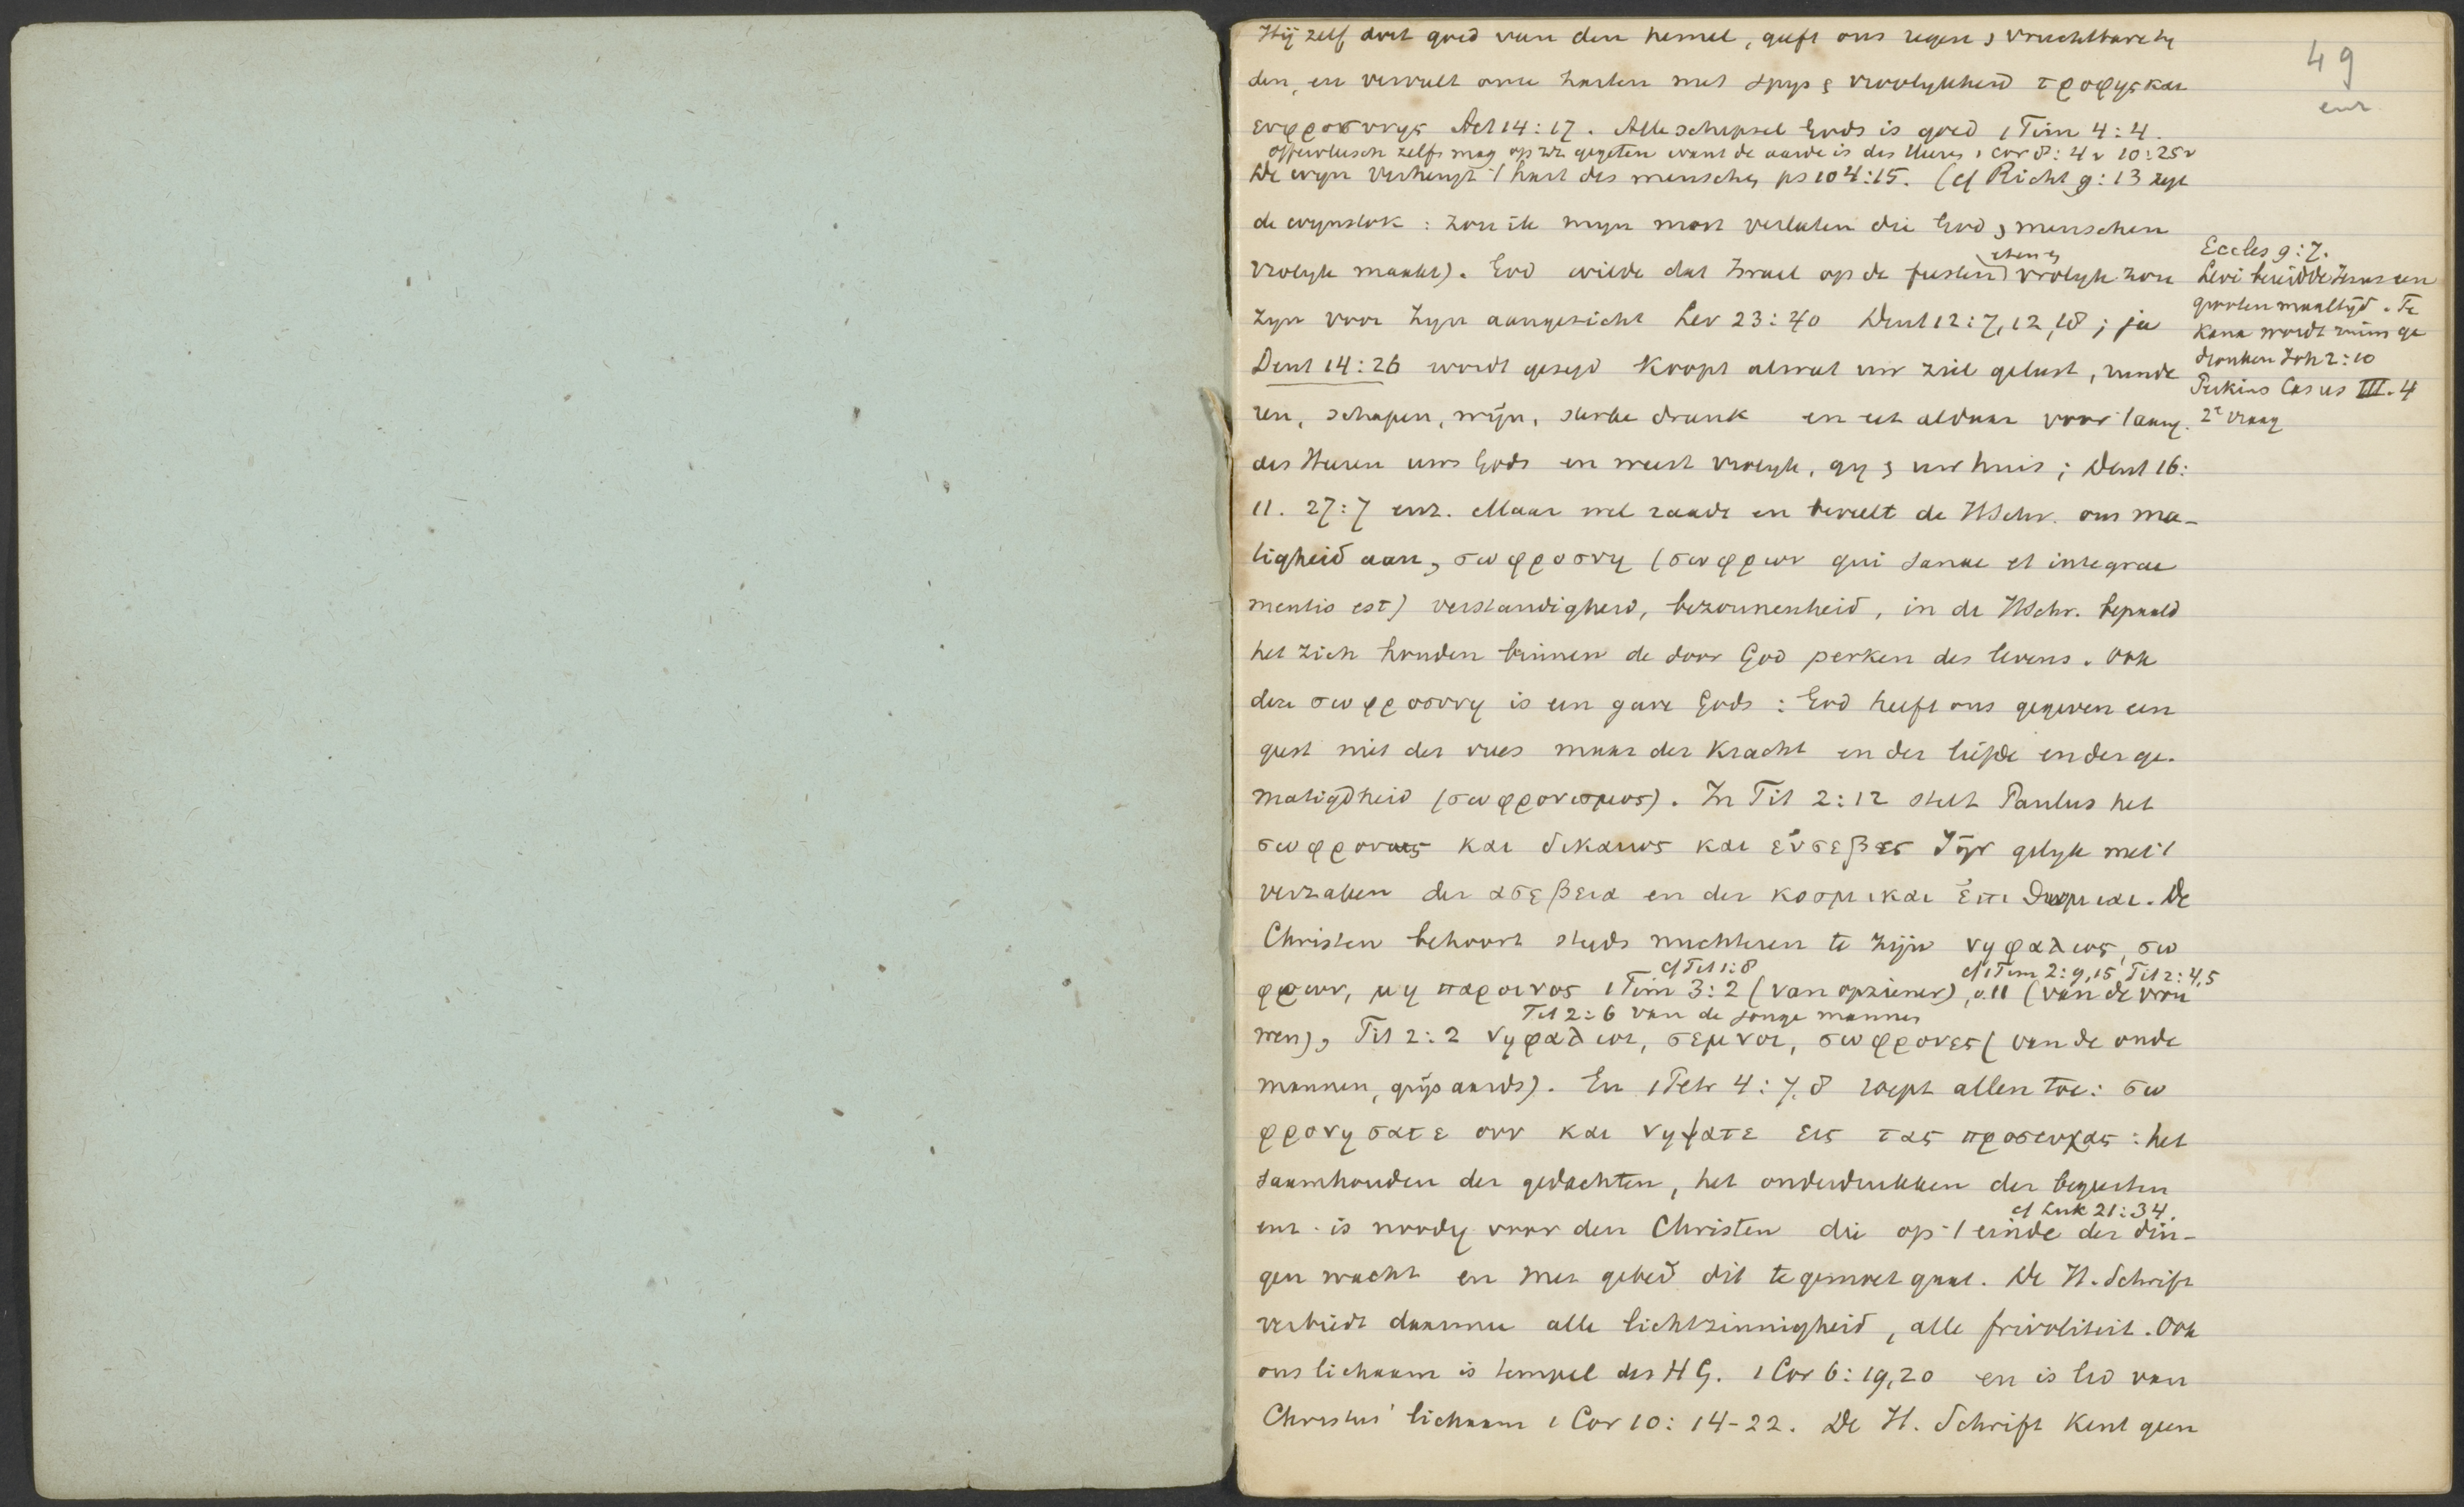 49
enz
Hij zelf doet goed van den hemel, geeft ons regen & vruchtbare ty
den, en vervult onze harten met spys & vroolykheid τροφης και
ευφροσυνης Act 14:17. Alle schepsel Gods is goed 1 Tim 4:4.
offervleesch zelfs mag op zich gegeten want de aarde is des Heeren 1 Cor 8:4v 10:25v
De wyn verheugt 't hart des menschen ps 104:15. (cf Richt 9:13 zegt
de wynstok: zou ik myn most verlaten die God & menschen
vrolyk maakt). God wilde dat Israel op de feesten eten & vrolyk zou
zyn voor Zyn aangezicht Lev 23:40 Deut 12:7,12,18; ja
Deut 14:26 wordt gezegd Koopt alwat uw ziel gelust, runde
ren, schapen, wijn, sterke drank en eet aldaar voor 't aang.
des Heeren uws Gods en weest vrolyk, gy & uw huis; Deut 16:
11. 27:7 enz. Maar wel raadt en beveelt de HSchr. ons ma-
tigheid aan, σωφροσυνη (σωφρων qui sanae et integrae
mentis est) verstandigheid, bezonnenheid, in de HSchr. bepaald
het zich houden binnen de door God perken des levens. Ook
deze σωφροσυνη is een gave Gods: God heeft ons gegeven een
geest niet der vrees maar der kracht en der liefde en der ge-
matigdheid (σωφρονισμος). In Tit 2:12 stelt Paulus het
σωφρονως και δικαιως και εὐσεβως ζην gelyk met 't
verzaken der ασεβεια en der κοσμικαι ἐπιθυμιαι. De
Christen behoort steeds nuchteren te zijn νηφαλιος, σω
φρων, μη παροινος 1 Tim 3:2 cf Tit 1:8 (van opziener), v. 11 cf 1 Tim 2:9,15, Tit 2:4,5 (van de vrou
wen), Tit 2:6 van de jonge mannen
Tit 2:2 νηφαλιοι, σεμνοι, σωφρονες (van de oude
mannen, grijsaards). En 1 Petr 4:7,8 roept allen toe: σω
φρονησατε ουν και νηψατε εις τας προσευχας: het
saamhouden der gedachten, het onderdrukken der begeerten
enz. is noodig voor den Christen die op 't einde der din-
cf Luk 21:34.
gen wacht en met gebed dit tegemoet gaat. De H. Schrift
verbiedt daarmee alle lichtzinnigheid, alle frivoliteit. Ook
ons lichaam is tempel des HG. 1 Cor 6:19,20 en is lid van
Christus' lichaam 1 Cor 10:14-22. De H. Schrift kent geen
Eccles 9:7.
Levi bereidde Jezus een
grooten maaltijd. Te
Kana wordt ruim ge
dronken Joh 2:10
Perkins Casus III. 4
2e vraag